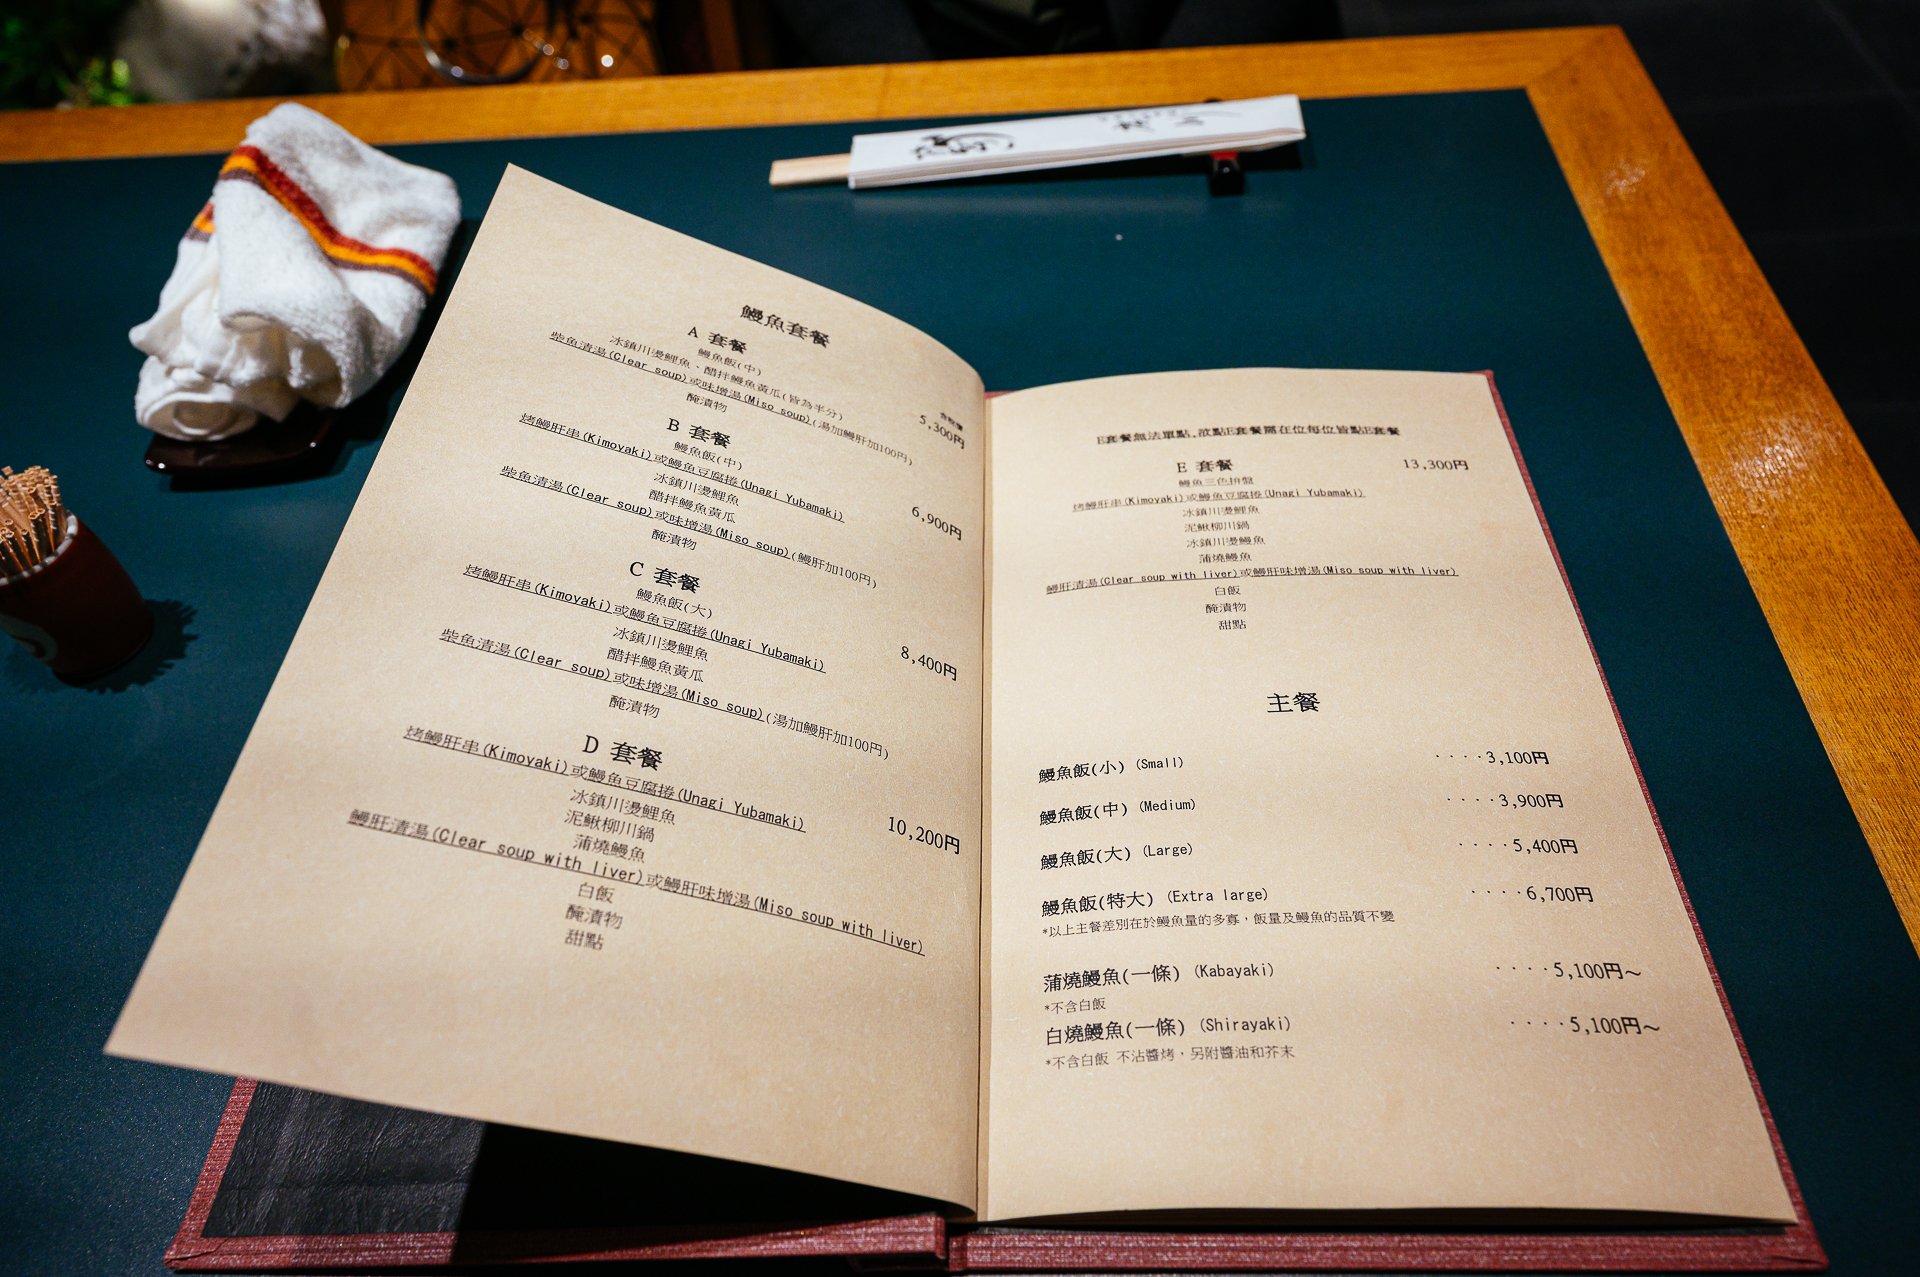 鰻魚套餐
A 套餐
鰻魚飯(中)
冰鎮川燙鯉魚、醋拌鰻魚黃瓜(皆為半分)
柴魚清湯(Clear soup)或味增湯(Miso soup)(湯加鰻肝加100円)
醃漬物
5,300円
B 套餐
鰻魚飯(中)
烤鰻肝串(Kimoyaki)或鰻魚豆腐捲(Unagi Yubamaki)
冰鎮川燙鯉魚
醋拌鰻魚黃瓜
6,900円
柴魚清湯(Clear soup)或味增湯(Miso soup)(鰻肝加100円)
醃漬物
C 套餐
鰻魚飯(大)
烤鰻肝串(Kimoyaki)或鰻魚豆腐捲(Unagi Yubamaki)
冰鎮川燙鯉魚
醋拌鰻魚黃瓜
8,400円
柴魚清湯(Clear soup)或味增湯(Miso soup)(湯加鰻肝加100円)
醃漬物
D 套餐
烤鰻肝串(Kimoyaki)或鰻魚豆腐捲(Unagi Yubamaki)
冰鎮川燙鯉魚
泥鰍柳川鍋
蒲燒鰻魚
10,200円
鰻肝清湯(Clear soup with liver)或鰻肝味增湯(Miso soup with liver)
白飯
醃漬物
甜點
E套餐無法單點,欲點E套餐需在位每位皆點E套餐
E 套餐 13,300円
鰻魚三色拼盤
烤鰻肝串(Kimoyaki)或鰻魚豆腐捲(Unagi Yubamaki)
冰鎮川燙鯉魚
泥鰍柳川鍋
冰鎮川燙鰻魚
蒲燒鰻魚
鰻肝清湯(Clear soup with liver)或鰻肝味增湯(Miso soup with liver)
白飯
醃漬物
甜點
主餐
鰻魚飯(小) (Small) ････3,100円
鰻魚飯(中) (Medium) ････3,900円
鰻魚飯(大) (Large) ････5,400円
鰻魚飯(特大) (Extra large) ････6,700円
*以上主餐差別在於鰻魚量的多寡，飯量及鰻魚的品質不變
蒲燒鰻魚(一條) (Kabayaki) ････5,100円～
*不含白飯
白燒鰻魚(一條) (Shirayaki) ････5,100円～
*不含白飯 不沾醬烤，另附醬油和芥末